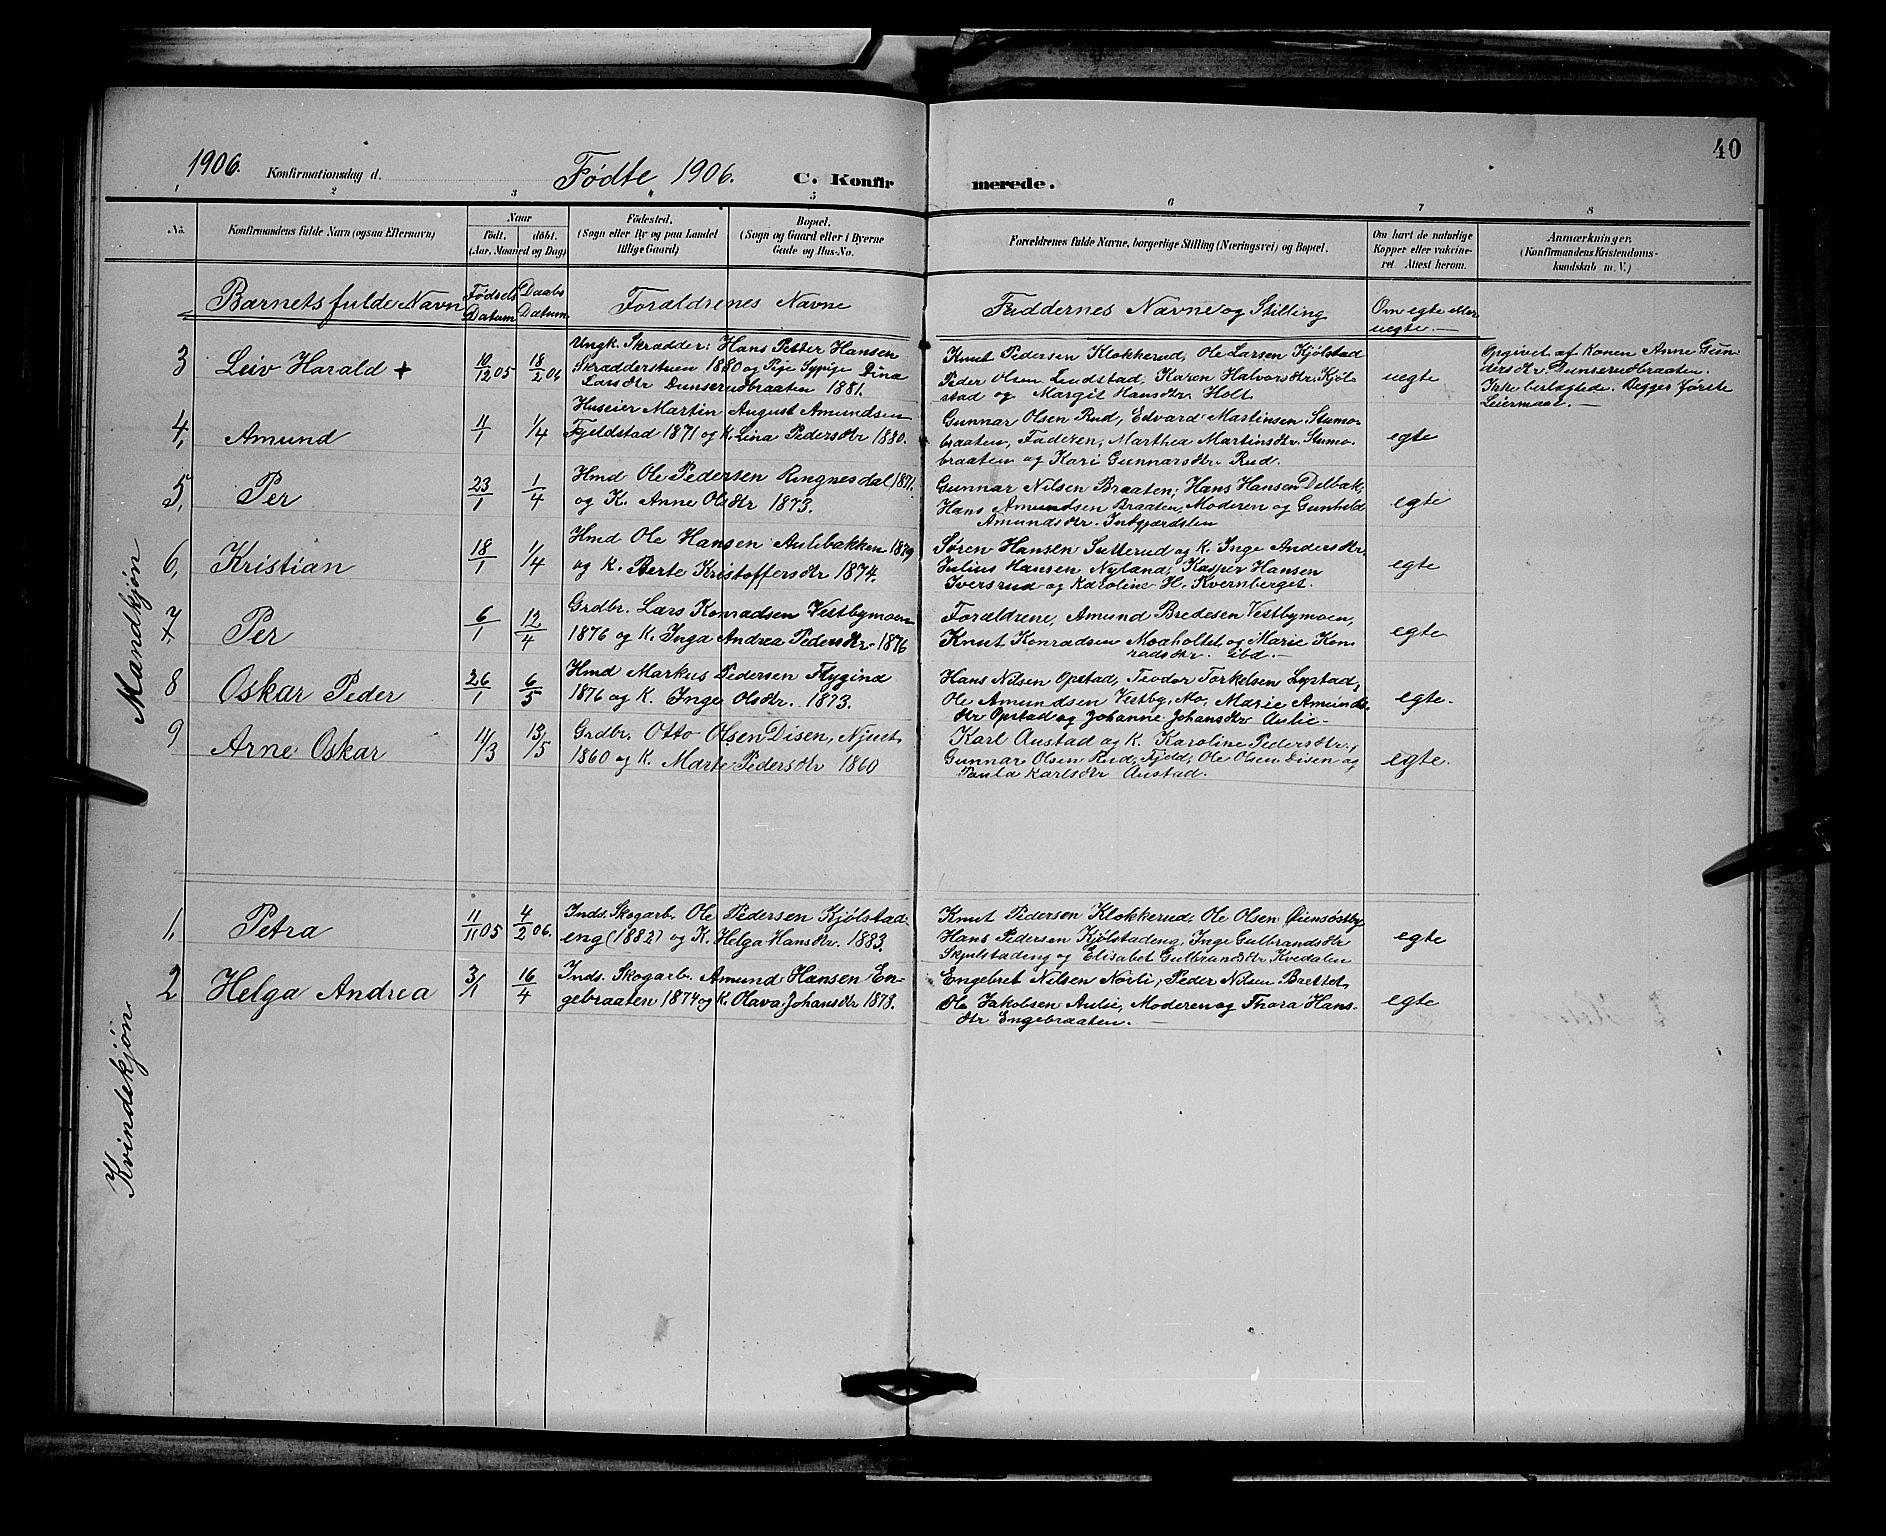 40
1906. Konfirmationsdag d. Fødte 1906. C. Konfirmerede.
1 2 3 4 5 6 7 8
No. Konfirmandens fulde Navn (ogsaa Efternavn)
Naar
født. døbt.
(Aar, Maaned og Dag)
Fødested.
(Sogn eller By og paa Landet
tillige Gaard)
Bopæl.
(Sogn og Gaard eller i Byerne
Gade og Hus-No.
Forældrenes fulde Navne, borgerlige Stilling (Næringsvei) og Bopæl.
Om havt de naturlige
Kopper eller vakcine-
ret Attest herom.
Anmærkninger.
(Konfirmandens Kristendoms-
kundskab m. V.)
Barnets fulde Navn
Fødsels
Datum
Daabs
Datum
Forældrenes Navne
Faddernes Navne og Stilling
Om egte eller
uegte.—
Mandkjøn
3 Leiv Harald + 10/12 05 18/2 06
Ungk. Skrædder: Hans Petter Hansen
Skrædderstuen 1880 og Pige Sypige Dina
Larsdtr Dunserudbraaten 1881.
Knut Pedersen Klokkerud, Ole Larsen Kjølstad
Peder Olsen Lindstad, Karen Halvorsdtr Kjøl-
stad og Margit Hansdtr Holt
uegte
Opgivet af Konen Anne Gun
dersdtr Dunserudbraaten.
Ikke beslægtede. Begges første
Leiermaal.—
4, Amund 11/1 1/4
Huseier Martin August Amundsen
Fjeldstad 1871 og K. Lina Pedersdtr 1880.
Gunnar Olsen Rud, Edvard Martinsen Stumo-
braaten, Faderen, Marthea Martinsdtr. Stumo-
braaten og Kari Gunnarsdtr Rud.
egte
5, Per 23/1 1/4
Hmd Ole Pedersen Ringnesdal 1871.
og K. Anne Olsdtr 1873.
Gunnar Nilsen Braaten, Hans Hansen Delbæk,
Hans Amundsen Braaten, Moderen og Gunhild
Amundsdtr.
egte
6, Kristian 18/1 1/4
Hmd Ole Hansen Auliebakken 1879,
og K. Berte Kristoffersdtr 1874.
Søren Hansen Sætterud og K. Inge Andersdtr,
Julius Hansen Nyland, Kasper Hansen
Iversrud og Karoline H. Kvernberget.
egte
7+ Per 6/1 12/4
Grdbr. Lars Konradsen Vestbymoen
1876 og K. Inga Andrea Pedersdtr 1876
Forældrene, Amund Bredesen Vestbymoen,
Knut Konradsen Moaholtet og Marie Kon
radsdtr. ibd.—
egte
8 Oskar Peder 26/1 6/5
Hmd Markus Pedersen Flygind
1876 og K. Inge Olsdtr. 1873.
Hans Nilsen Opstad, Teodor Torkelsen Lystad,
Ole Amundsen Vestby, Mo, Marie Amunds
dtr Opstad og Johanne Johansdtr Aulie—
egte.
9 Arne Oskar 11/3 13/5
Grdbr. Otto Olsen Disen,
1860 og K. Marte Pedersdtr 1860
Karl Austad og K. Karoline Pedersdtr,
Gunnar Olsen Rud, Fjeld, Ole Olsen Disen og
Paula Karlsdtr Austad.
egte.
Kvindekjøn
1, Petra 11/11 05 4/2 06.
Inds. Skogarb. Ole Pedersen Kjølstad-
eng (1882) og K. Helga Hansdtr. 1883.
Knut Pedersen Klokkerud, Ole Olsen Øiensøstby
Hans Pedersen Kjølstadeng, Inge Gulbrandsdtr
Skjulstadeng og Elisabet Gulbrandsdtr Kvedalen
egte
2 Helga Andrea 3/1 16/4
Inds. Skogarb. Amund Hansen En-
gebraaten 1874 og K. Olava Johansdtr 1873.
Engebret Nilsen Norli, Peder Nilsen Brettet,
Ole Jakobsen Aulie, Moderen og Thora Hans-
dtr Engebraaten.—
egte